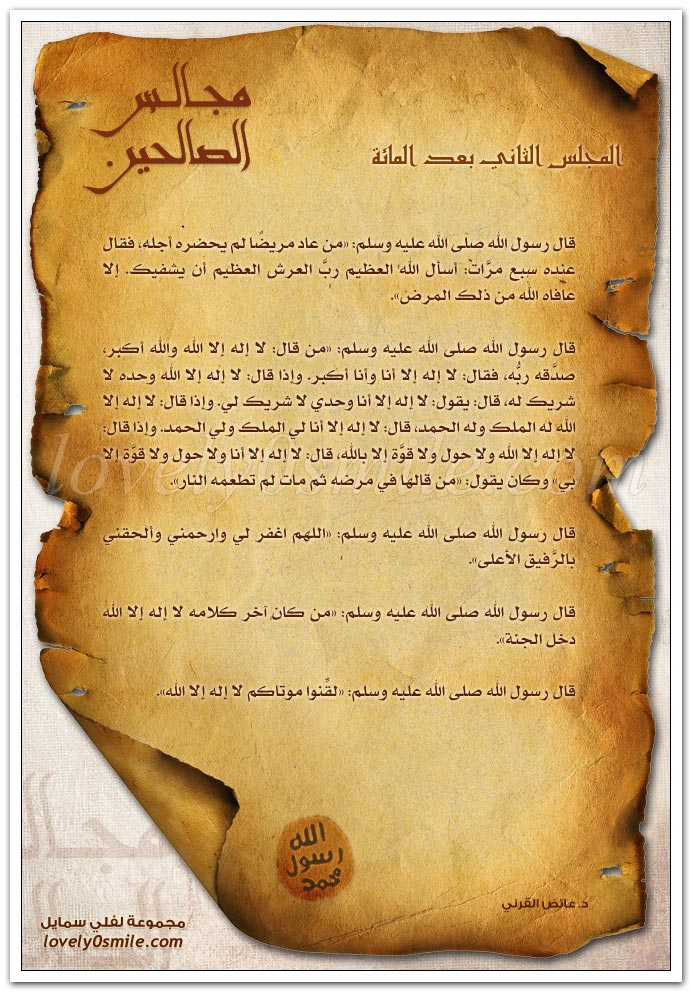 مجالس
الصالحين
المجلس الثاني بعد المائة
قال رسول الله صلى الله عليه وسلم: «من عاد مريضًا لم يحضره أجله، فقال
عنده سبع مرَّات: أسأل الله العظيم ربَّ العرش العظيم أن يشفيك. إلا
عافاه الله من ذلك المرض».
قال رسول الله صلى الله عليه وسلم: «من قال: لا إله إلا الله والله أكبر،
صدَّقه ربُّه، فقال: لا إله إلا أنا وأنا أكبر. وإذا قال: لا إله إلا الله وحده لا
شريك له، قال: يقول: لا إله إلا أنا وحدي لا شريك لي. وإذا قال: لا إله إلا
الله له الملك وله الحمد، قال: لا إله إلا أنا لي الملك ولي الحمد. وإذا قال:
لا إله إلا الله ولا حول ولا قوَّة إلا بالله، قال: لا إله إلا أنا ولا حول ولا قوَّة إلا
بي» وكان يقول: «من قالها في مرضه ثم مات لم تطعمه النار».
قال رسول الله صلى الله عليه وسلم: «اللهم اغفر لي وارحمني وألحقني
بالرَّفيق الأعلى».
قال رسول الله صلى الله عليه وسلم: «من كان آخر كلامه لا إله إلا الله
دخل الجنة».
قال رسول الله صلى الله عليه وسلم: «لقِّنوا موتاكم لا إله إلا الله».
lovely0smile.com
الله
رسول
محمد
د.عائض القرني
مجموعة لفلي سمايل
lovely0smile.com